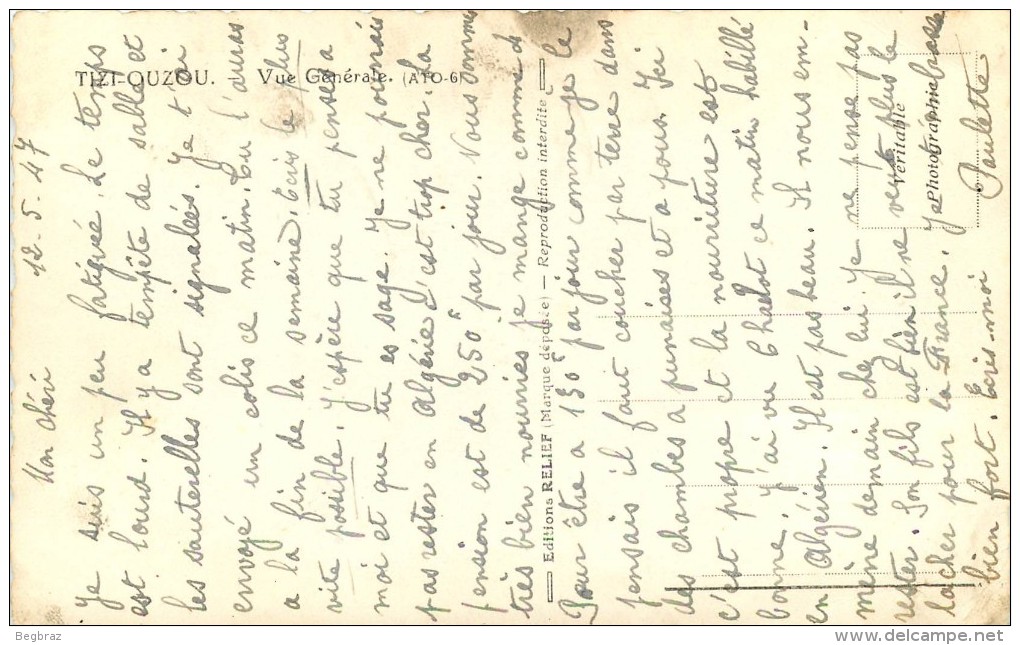 TIZI-OUZOU. Vue Générale. (ATO-6)
Editions RELIEF (Marque déposée) — Reproduction interdite
Véritable
Photographie
12-5-47
Mon chéri
Je suis un peu fatiguée. Le temps
est lourd. Il y a tempête de salle et
les sauterelles sont signalées. Je t'ai
envoyé un colis ce matin. Tu l'auras
a la fin de la semaine. Écris le plus
vite possible. J'espère que tu penses a
moi et que tu es sage. Je ne pourrais
pas rester en Algérie c'est trop cher. La
pension est de 250 F par jour. Nous sommes
très bien nourries je mange comme 4
Pour être a 130 F par jour comme je le
pensais il faut coucher par terre dans
des chambes a punaises et a poux. Ici
c'est propre et la nourriture est
bonne. J'ai vu Chalot ce matin habillé
en Algérien. Il est pas beau. Il nous em-
mène demain chez lui. Je ne pense pas
rester. Son fils est bien il ne veut plus le
lâcher pour la France. Je
bien fort. Ecris-moi Paulette
Begbraz
www.delcampe.net